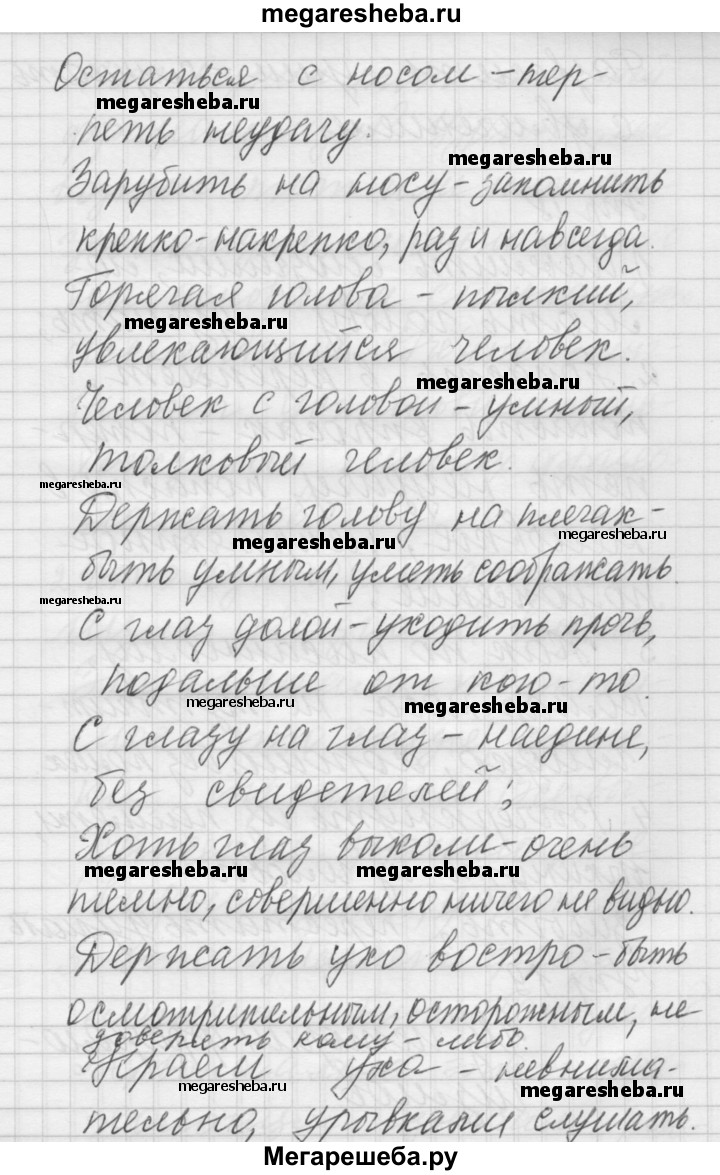 megaresheba.ru
Остаться с носом – тер-
megaresheba.ru
петь неудачу.
megaresheba.ru
Зарубить на носу – запомнить
крепко-накрепко, раз и навсегда.
Горячая голова – пылкий,
megaresheba.ru
увлекающийся человек.
megaresheba.ru
Человек с головой – умный,
толковый человек.
megaresheba.ru
Держать голову на плечах –
megaresheba.ru megaresheba.ru
быть умным, уметь соображать.
megaresheba.ru
С глаз долой – уходить прочь,
подальше от кого-то.
megaresheba.ru megaresheba.ru
С глазу на глаз – наедине,
без свидетелей;
Хоть глаз выколи – очень
megaresheba.ru megaresheba.ru
темно, совершенно ничего не видно.
Держать ухо востро – быть
осмотрительным, осторожным, не
доверять кому-либо.
Краем уха – невнима-
megaresheba.ru megaresheba.ru
тельно, урывками слушать.
Мегарешеба.ру